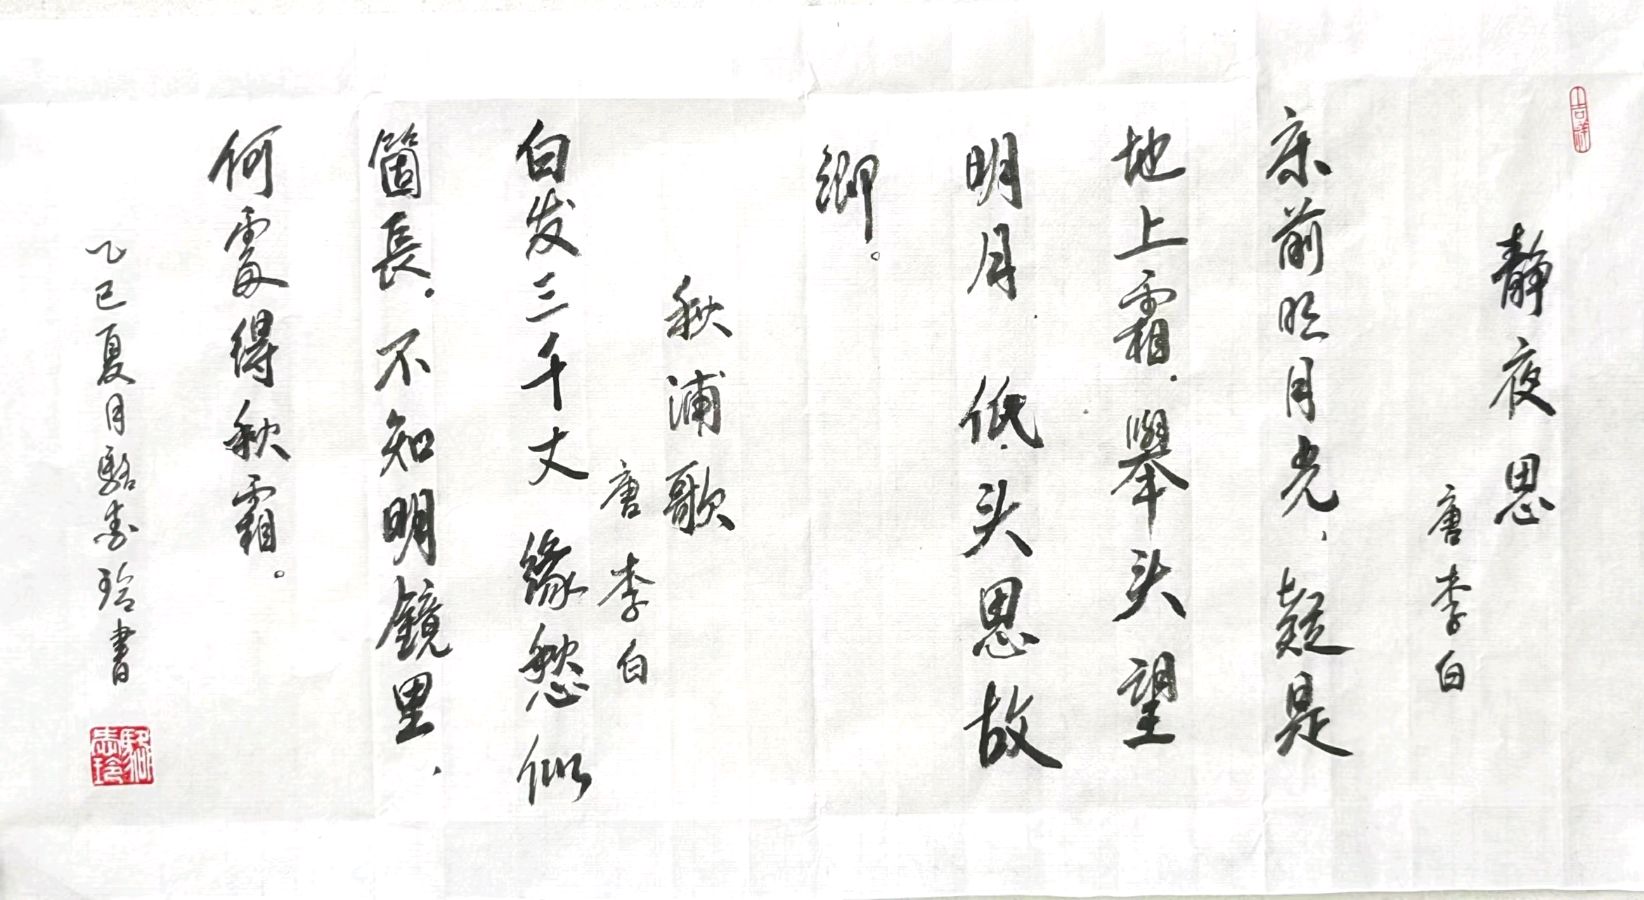 吉祥
静夜思
唐 李白
床前明月光，疑是
地上霜。舉头望
明月，低头思故
鄉。
秋浦歌
唐 李白
白发三千丈 缘愁似
箇長。不知明鏡里，
何處得秋霜。
乙巳夏月駱志玲書
駱志玲